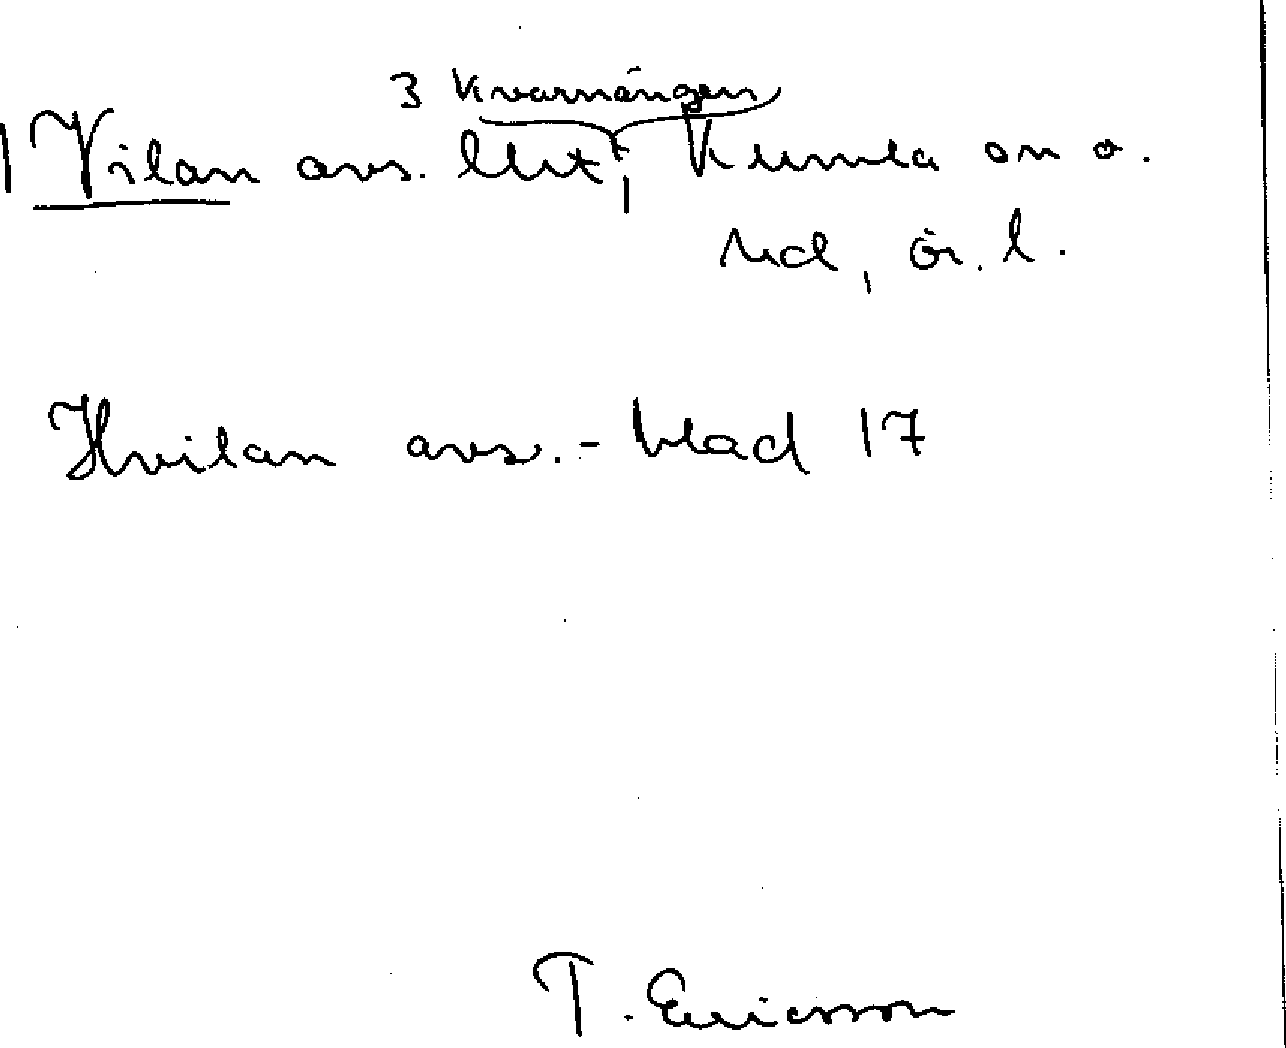 3 Kvarnängen
1 Vilan avs. Ekt, Kumla sn o.
hd, ör. l.
Hvilan avs. - blad 17
T. Ericsson